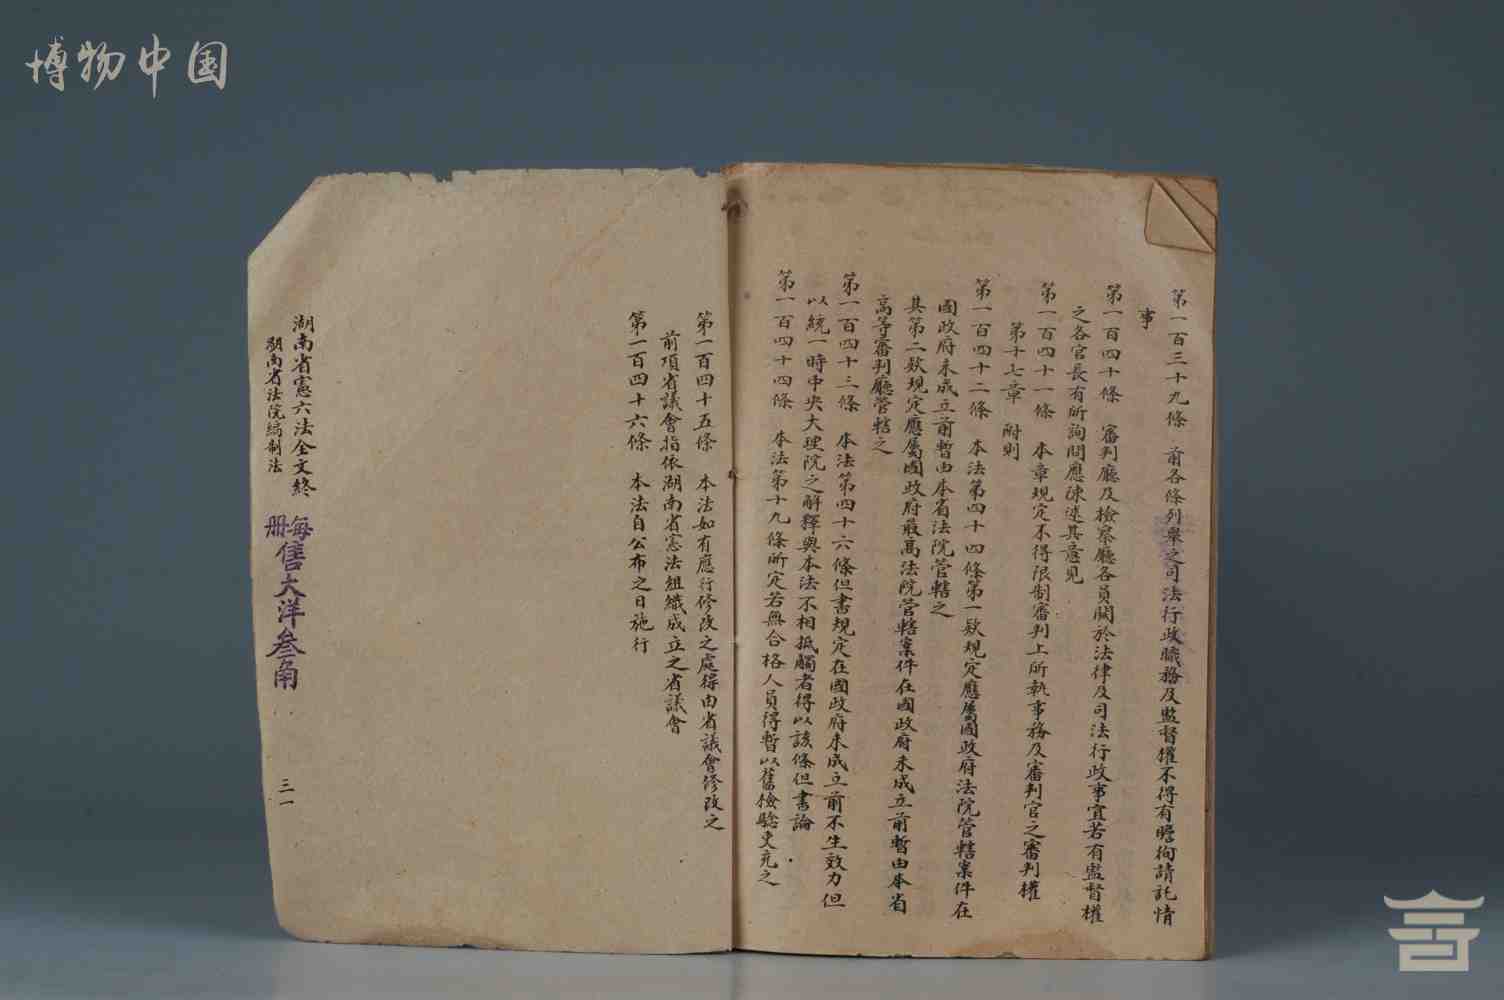 博物中国
第一百三十九條　前各條列舉之司法行政職務及監督權不得有瞻徇請託情
事
第一百四十條　審判廳及檢察廳各員關於法律及司法行政事宜若有監督權
之各官長有所詢問應陳述其意見
第一百四十一條　本章規定不得限制審判上所執事務及審判官之審判權
第十七章　附則
第一百四十二條　本法第四十四條第一款規定應屬國政府法院管轄案件在
國政府未成立前暫由本省法院管轄之
其第二款規定應屬國政府最高法院管轄案件在國政府未成立前暫由本省
高等審判廳管轄之
第一百四十三條　本法第四十六條但書規定在國政府未成立前不生效力但
以統一時中央大理院之解釋與本法不相抵觸者得以該條但書論
第一百四十四條　本法第十九條所定若無合格人員得暫以舊檢驗吏充之
第一百四十五條　本法如有應行修改之處得由省議會修改之
前項省議會指依湖南省憲法組織成立之省議會
第一百四十六條　本法自公布之日施行
湖南省憲六法全文終
湖南省法院編制法
三一
每冊售大洋叁角